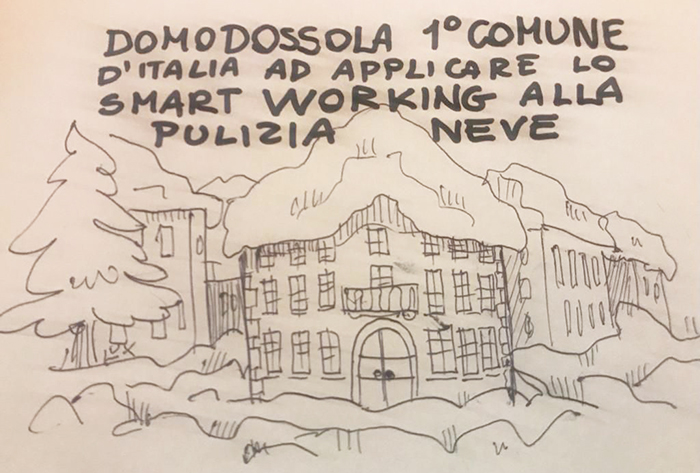 DOMODOSSOLA 1° COMUNE
D'ITALIA AD APPLICARE LO
SMART WORKING ALLA
PULIZIA NEVE